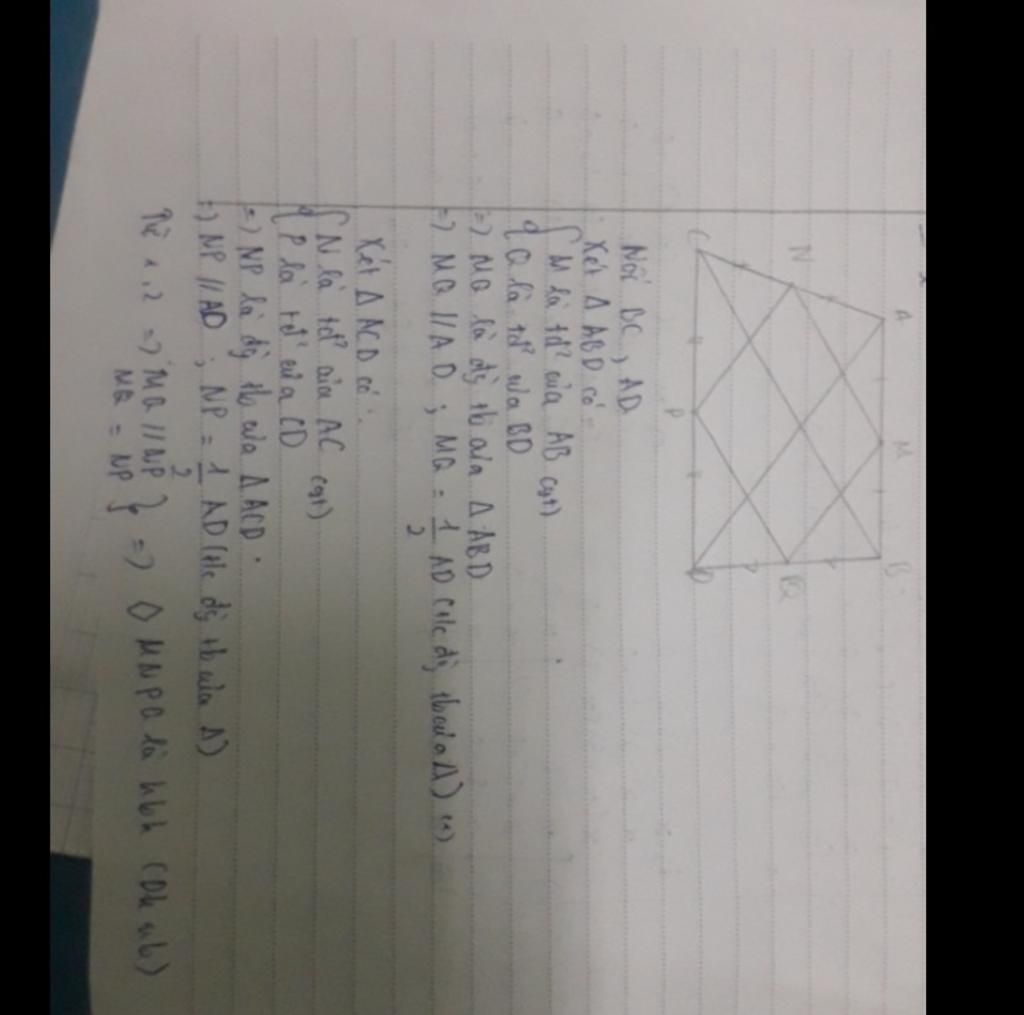 A M B
N Q
C P D
Nối BC, AD
Xét Δ ABD có
M là tđ' của AB (gt)
Q là tđ' của BD
=) MQ là đg tb của Δ ABD
=) MQ // AD ; MQ = 1/2 AD (t/c đg tb của Δ) (1)
Xét Δ ACD có :
N là tđ' của AC (gt)
P là tđ' của CD
=) NP là đg tb của Δ ACD.
=) NP // AD ; NP = 1/2 AD (t/c đg tb của Δ)
Từ 1,2 =) MQ // NP } =) ◊ MNPQ là hbh (Dh nb)
MQ = NP